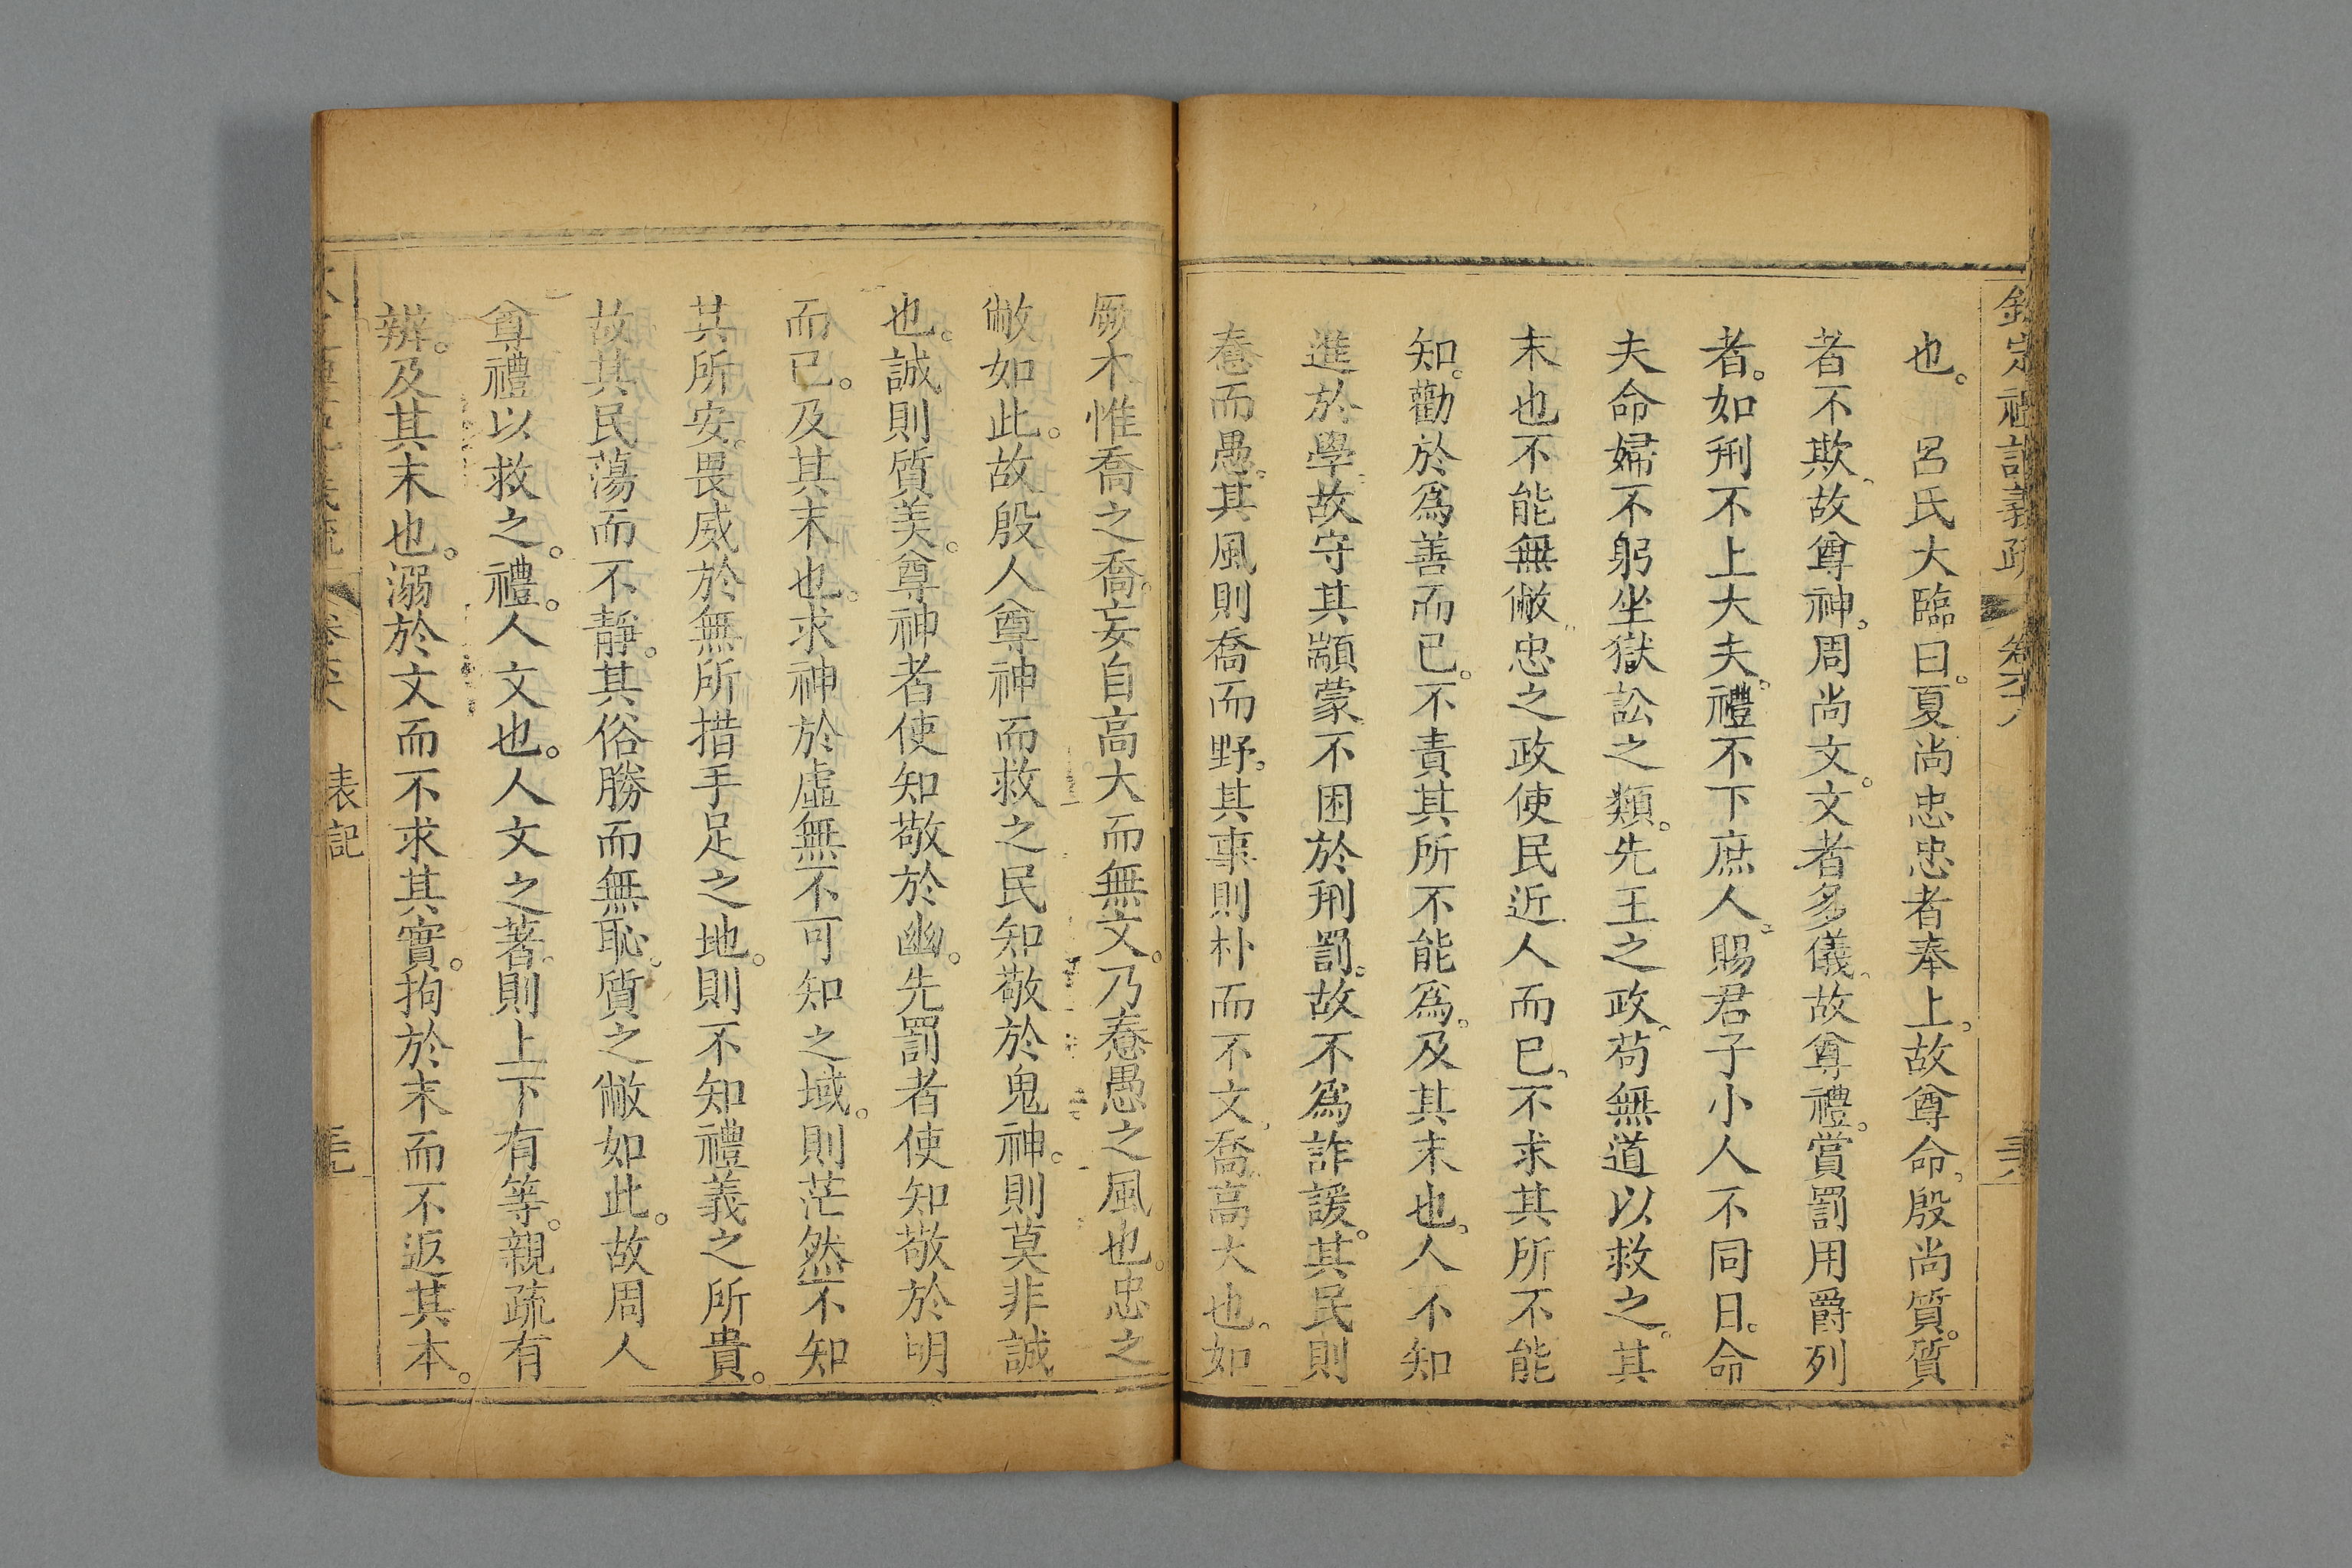 欽定禮記義疏 卷六十八 三六
也。 呂氏大臨曰。夏尚忠忠者奉上。故尊命。殷尚質。質
者不欺。故尊神。周尚文。文者多儀。故尊禮。賞罰用爵列
者。如刑不上大夫。禮不下庶人。賜君子小人不同日。命
夫命婦不躬坐獄訟之類。先王之政。苟無道以救之。其
末也不能無敝。忠之政使民近人而已。不求其所不能
知。勸於爲善而已。不責其所不能爲。及其末也。人不知
進於學。故守其顓蒙。不困於刑罰。故不爲詐諼。其民則
惷而愚。其風則喬而野。其事則朴而不文。喬高大也。如
厥木惟喬之喬。妄自高大而無文。乃惷愚之風也。忠之
敝如此。故殷人尊神而救之民知敬於鬼神。則莫非誠
也。誠則質美。尊神者使知敬於幽。先罰者使知敬於明
而已。及其末也。求神於虛無不可知之域。則茫然不知
其所安。畏威於無所措手足之地。則不知禮義之所貴。
故其民蕩而不靜。其俗勝而無恥。質之敝如此。故周人
尊禮以救之。禮。人文也。人文之著。則上下有等。親疏有
辨。及其末也。溺於文而不求其實。拘於末而不返其本。
義疏 卷六十八 表記